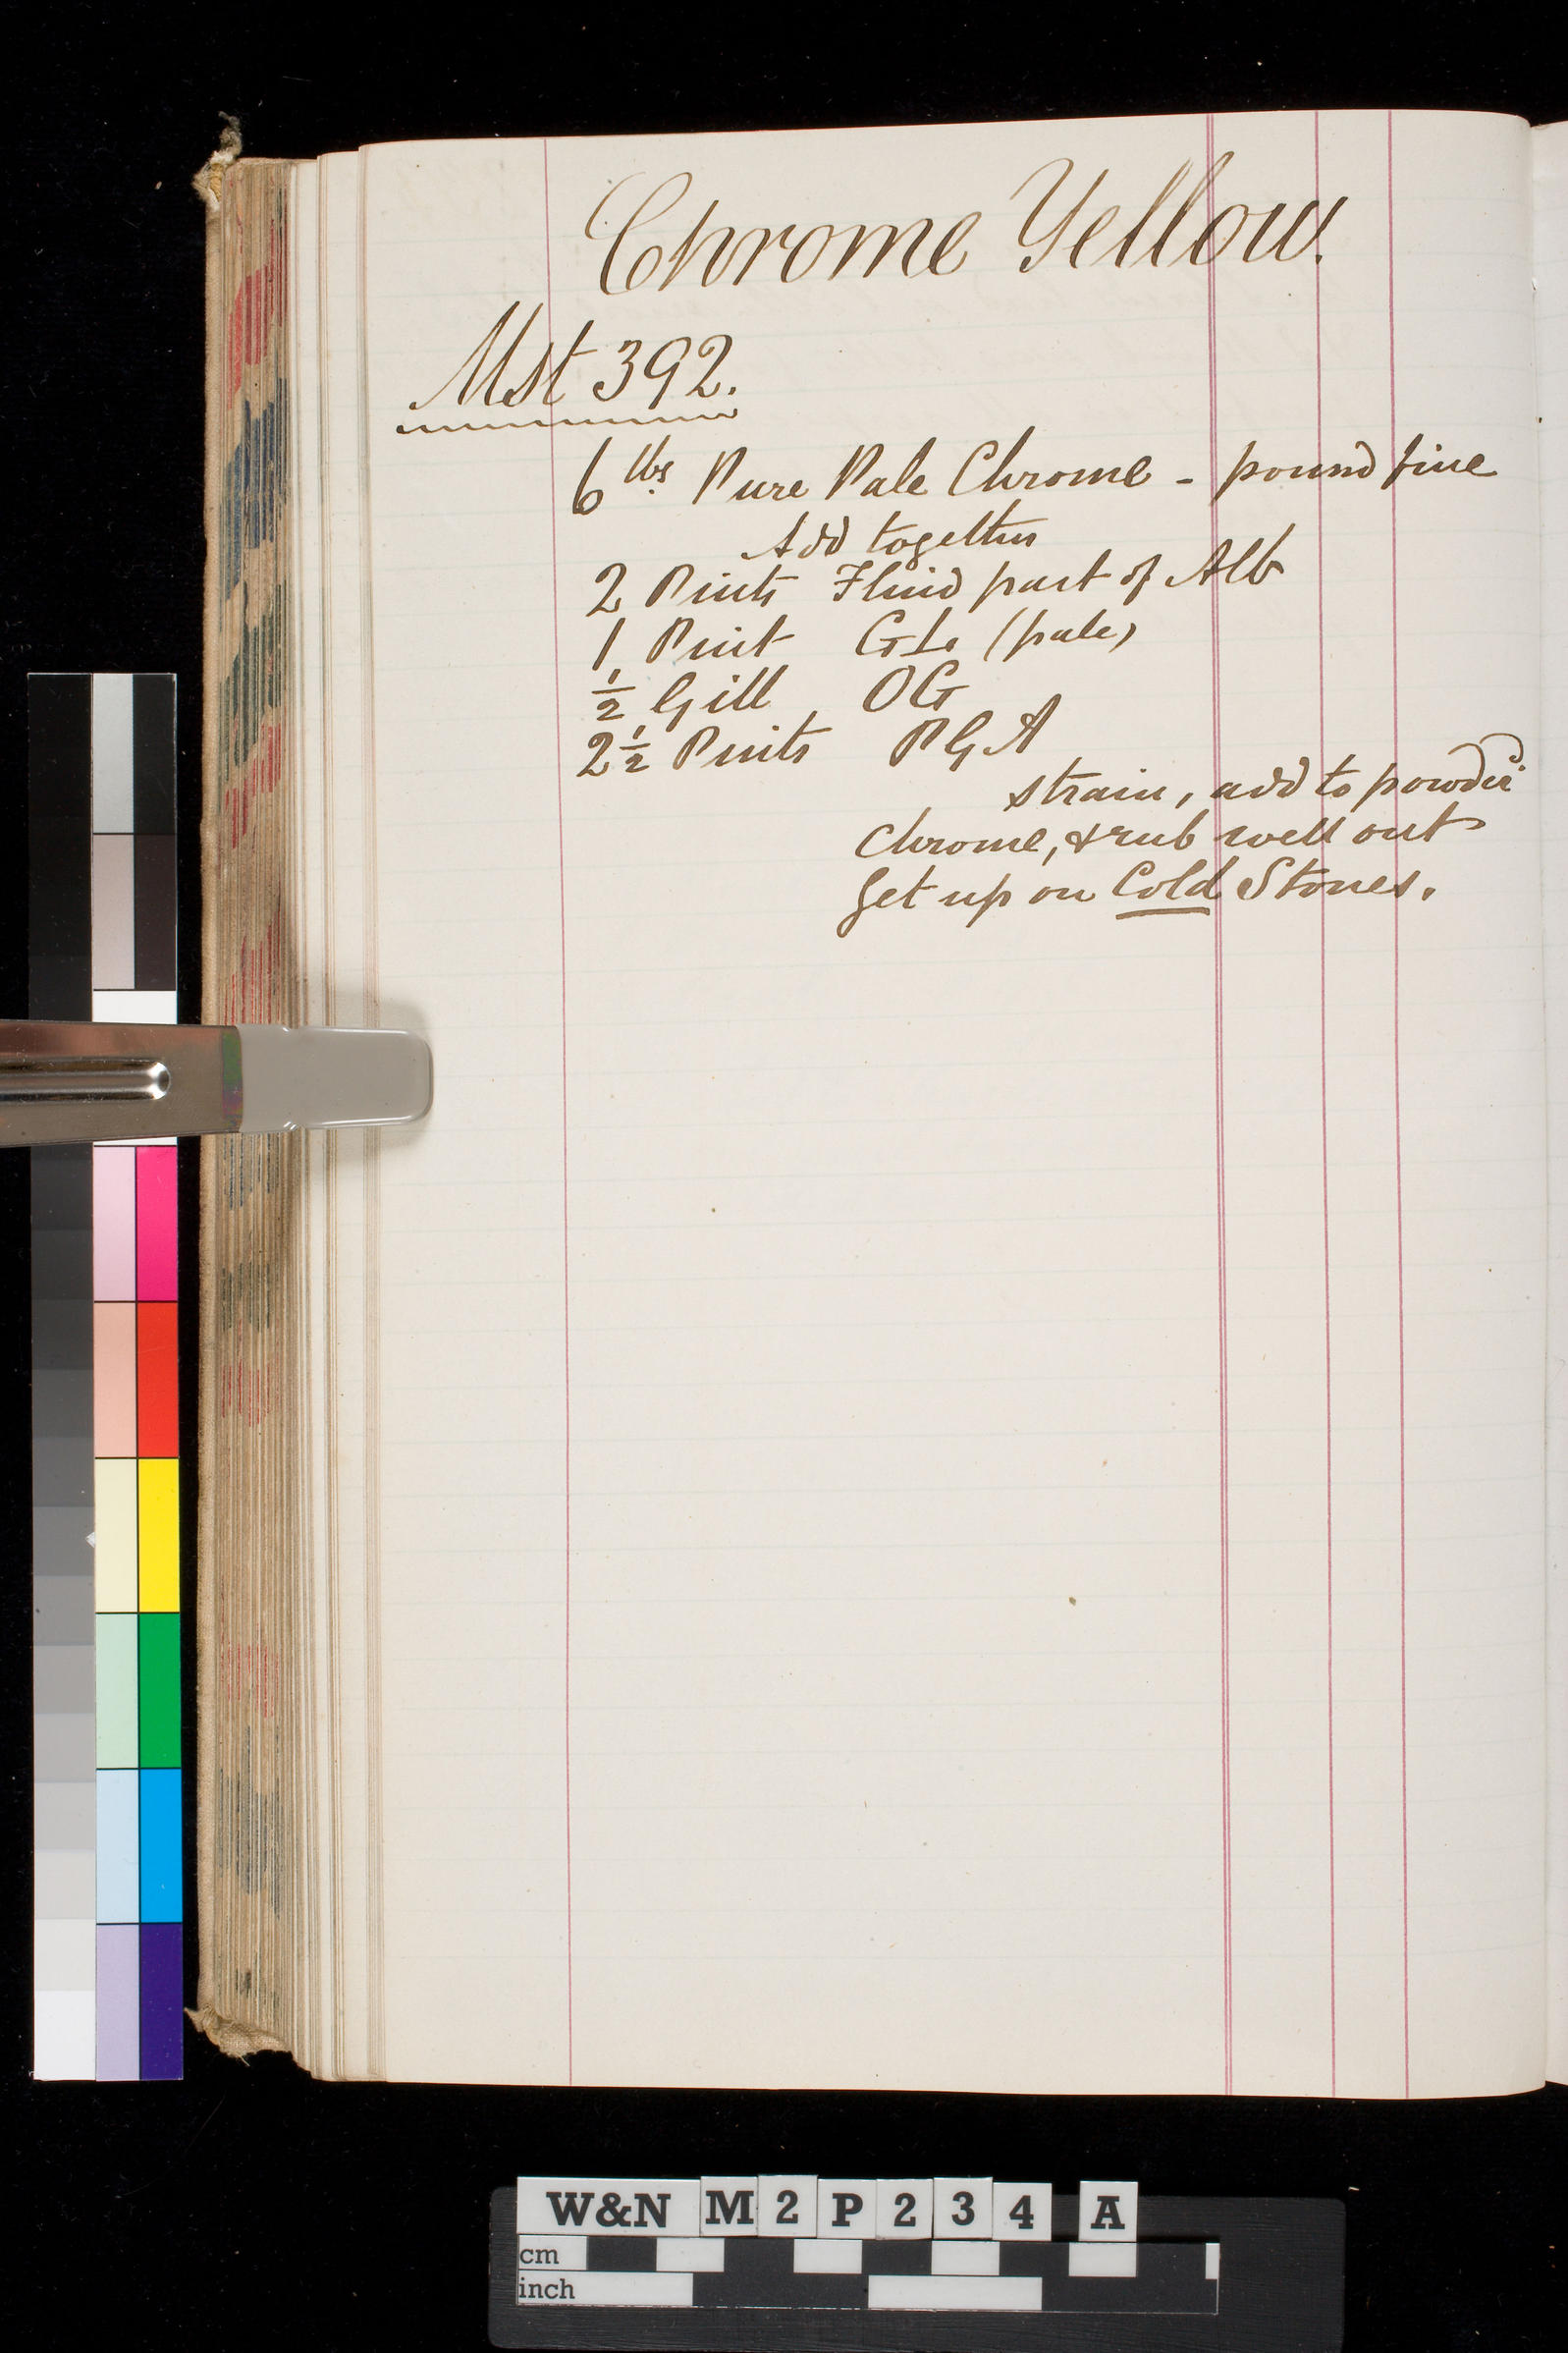 Chrome Yellow.
Mst 392.
6 lbs Pure Pale Chrome - pound fine
Add together
2 Pints Fluid part of Alb
1 Pint GL (pale)
½ Gill OG
2½ Pints PGA
strain, add to powdr'd
Chrome, & rub well out
Get up on Cold Stones.
W&N M 2 P 2 3 4 A
cm
inch